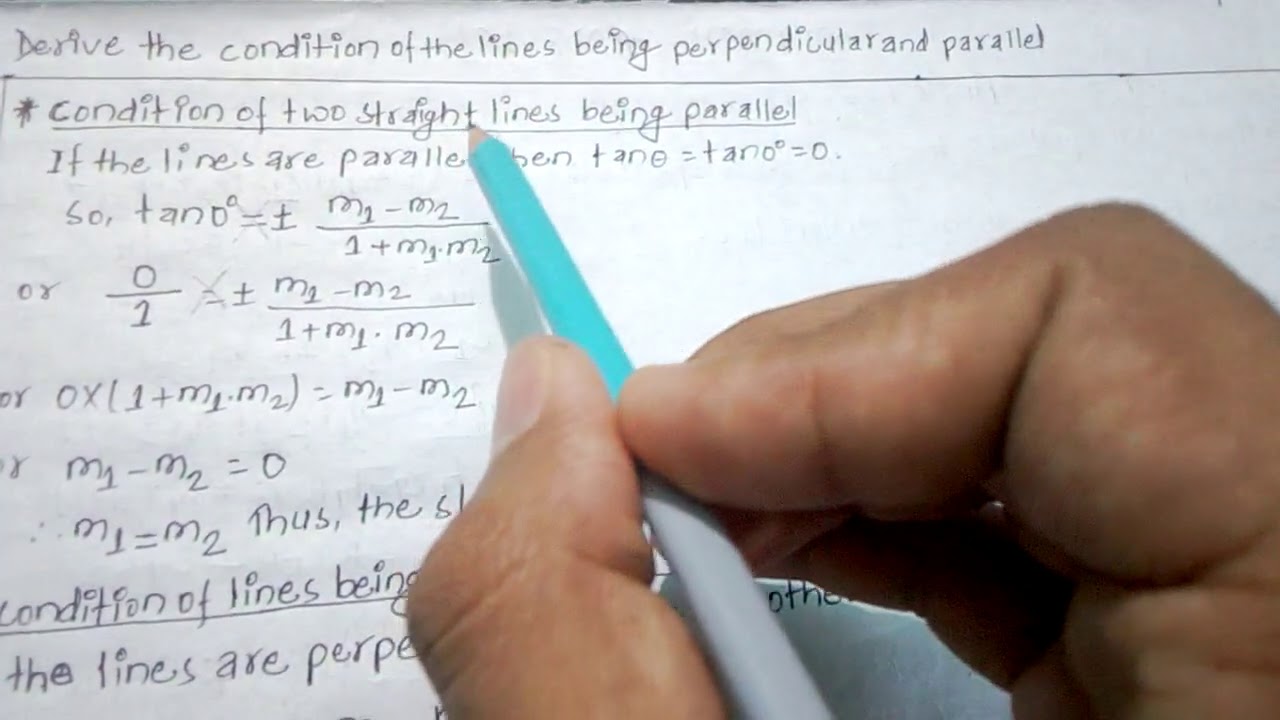 Derive the condition of the lines being perpendicular and parallel
* Condition of two straight lines being parallel
If the lines are tanθ = tan0° = 0.
So, tan0° = ± m₁ - m₂ / 1 + m₁.m₂
or 0/1 = ± m₁ - m₂ / 1 + m₁. m₂
or 0×(1+m₁.m₂) = m₁ - m₂
m₁ - m₂ = 0
∴ m₁ = m₂ Thus, the
Condition of lines being
the lines are